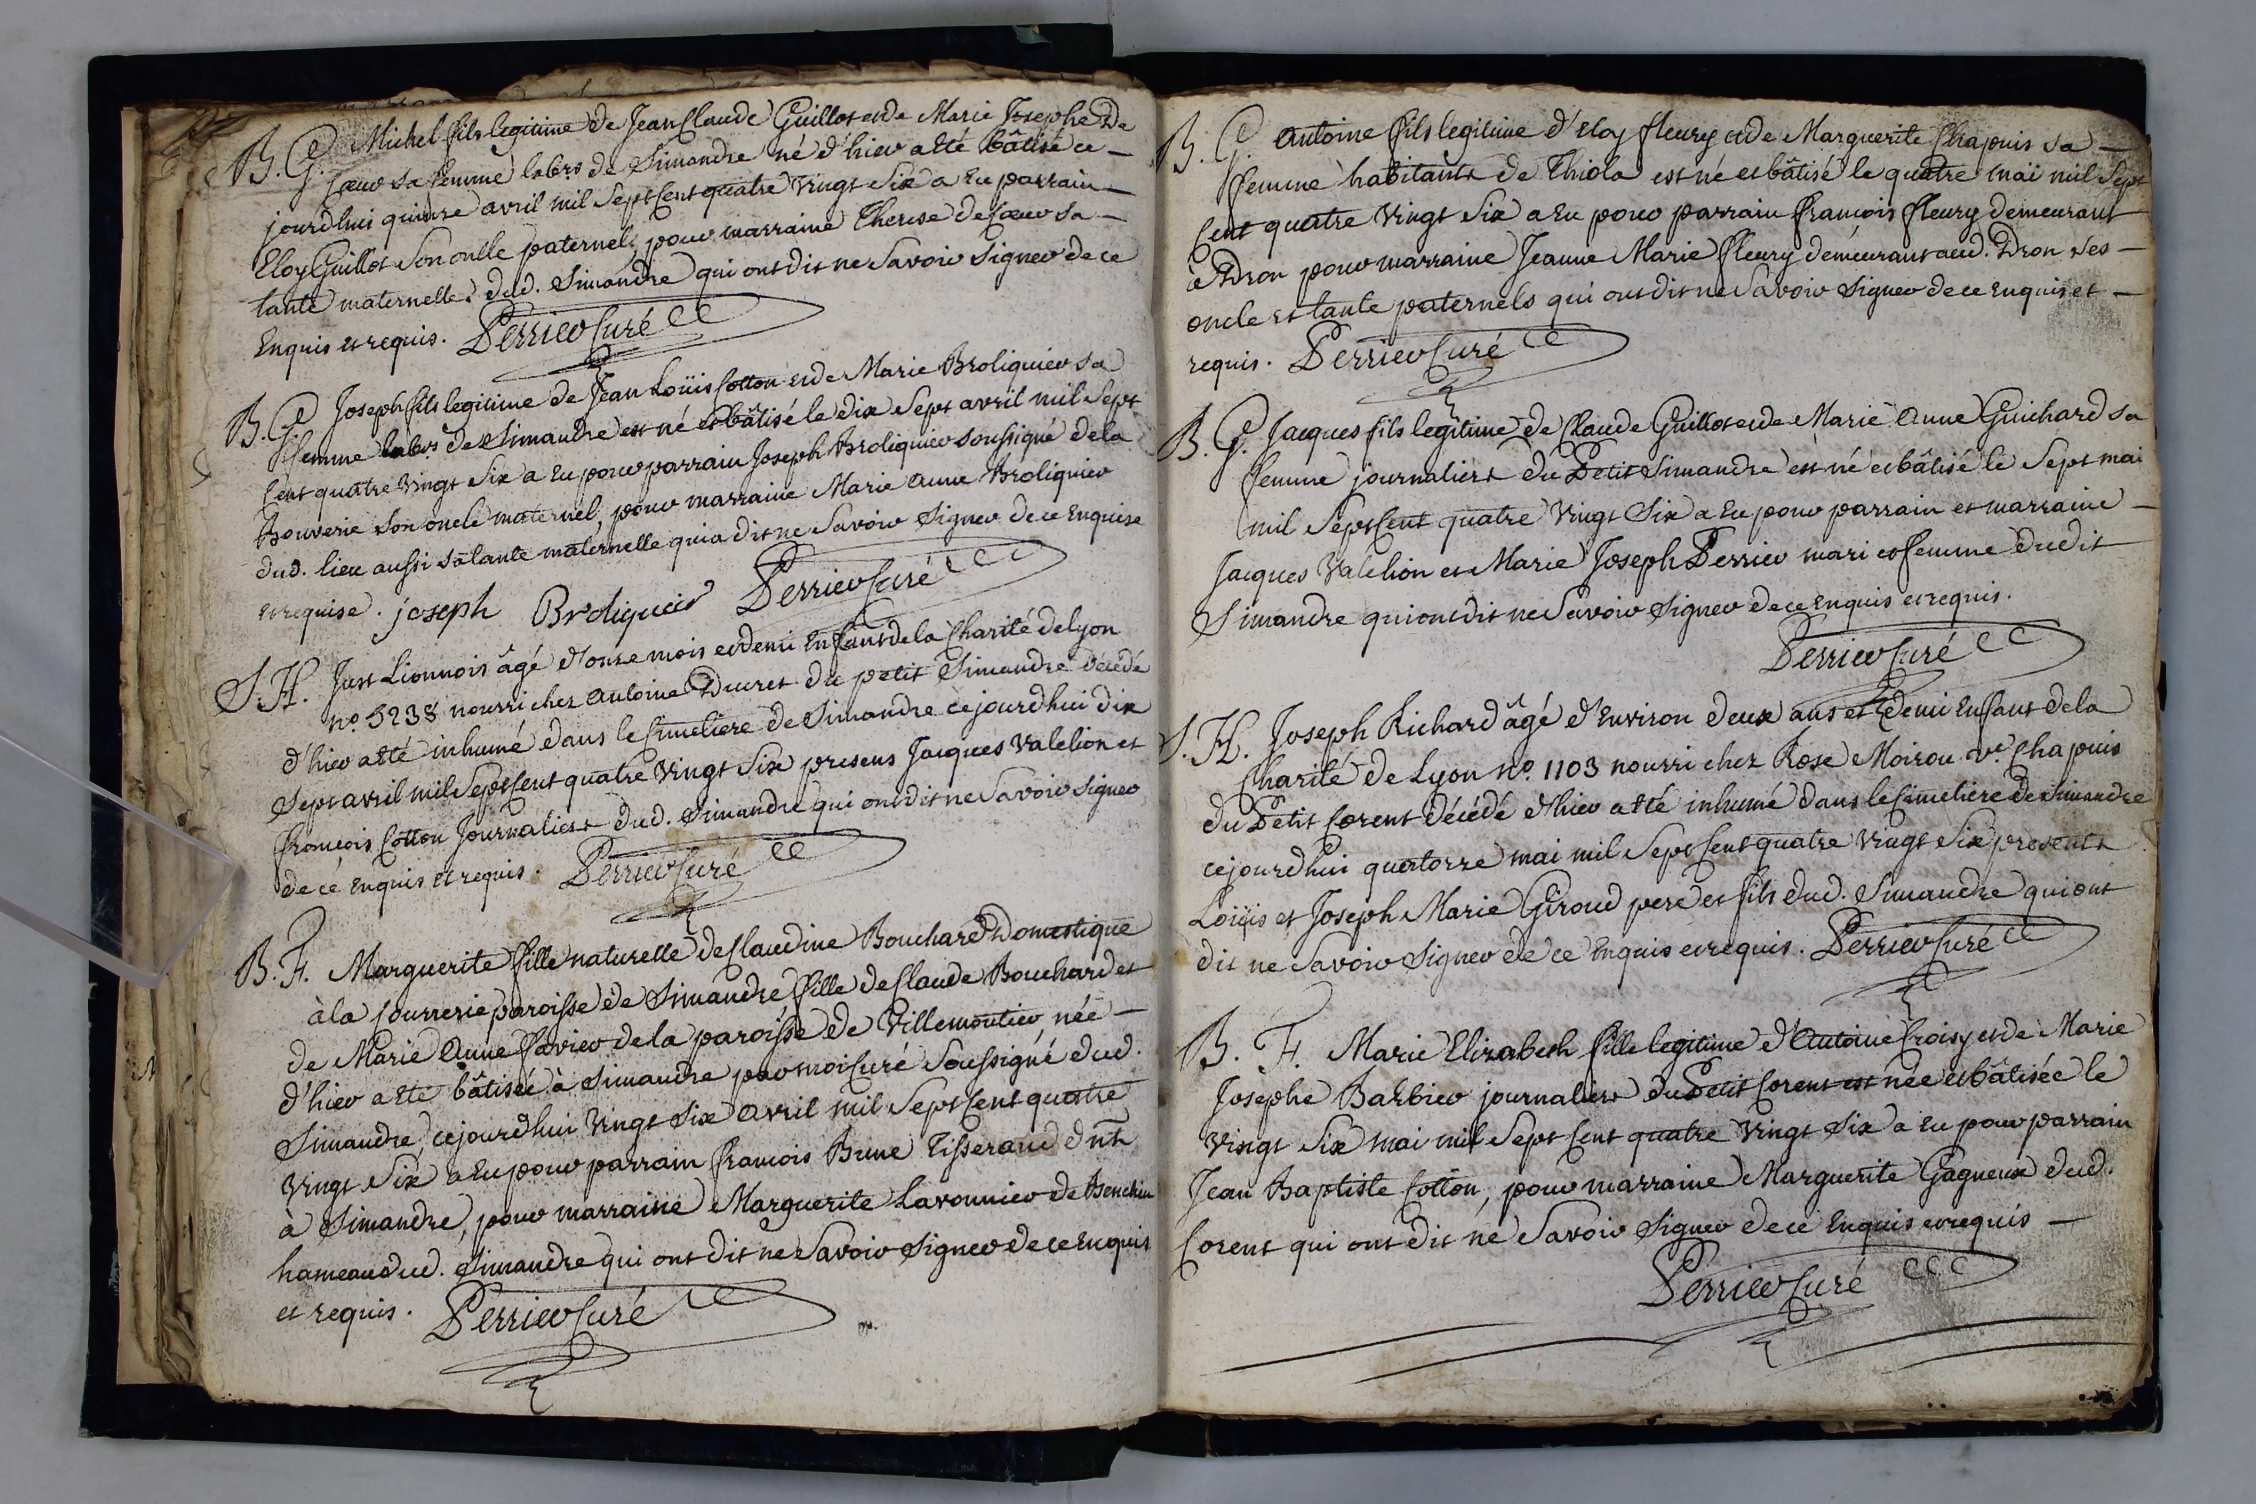 B. G. Michel fils legitime de Jean Claude Guillot et de Marie Josephe De
Cœur sa femme labrs de Simandre né d'hier a Eté bâtisé ce
jourdhui quinze avril mil Sept Cent quatre Vingt Six a Eu parrain
Eloy Guillot Son oncle paternel, pour marraine Therese deCœur sa
tante maternelle dud. Simandre qui ont dit ne Savoir Signer de ce
Enquis et requis. Perrier Curé
B. G. Joseph fils legitime de Jean Loüis Cotton et de Marie Broliquier sa
femme labrs de Simandre est né et bâtisé le dix Sept avril mil Sept
Cent quatre Vingt Six a Eu pour parrain Joseph Broliquier soussigné de la
Bouverie son oncle maternel, pour marraine Marie Anne Broliquier
dud. lieu aussi sa tante maternelle qui a dit ne Savoir Signer de ce Enquise
et requise. joseph Broliqueir Perrier Curé
S. H. Just Lionnois âgé d'onze mois et demi Enfant de la Charité de Lyon
no. 5238 nourri chez Antoine Ducret du petit Simandre décédé
d'hier a Eté inhumé dans le Cimetiere de Simandre cejourdhui dix
Sept avril mil Sept Cent quatre Vingt Six presens Jacques Valelion et
François Cotton Journaliers dud. Simandre qui ont dit ne Savoir Signer
de ce Enquis et requis. Perrier Curé
B. F. Marguerite fille naturelle de Claudine Bouchard Domestique
à la paroisse de Simandre fille de Claude Bouchard et
de Marie Anne Favier de la paroisse de Villemontier, née
d'hier a Eté bâtisée à Simandre par moi Curé Soussigné dud.
Simandre, cejourdhui Vingt Six avril mil Sept Cent quatre
Vingt Six a Eu pour parrain François Brune Tisserand dnt
à Simandre, pour marraine Marguerite Lavonnier de
hameau dud. Simandre qui ont dit ne Savoir Signer de ce Enquis
et requis. Perrier Curé
B. G. Antoine fils legitime d'Eloy fleury et de Marguerite Chapuis sa
femme habitants de Thiola est né et bâtisé le quatre mai mil Sept
Cent quatre Vingt Six a Eu pour parrain François fleury demeurant
à Dron pour marraine Jeanne Marie fleury demeurant aud. Dron ses
oncle et tante paternels qui ont dit ne Savoir Signer de ce Enquis et
requis. Perrier Curé
B. G. Jacques fils legitime de Claude Guillot et de Marie Anne Guichard sa
femme journaliers du Petit Simandre est né et bâtisé le Sept mai
mil Sept Cent quatre Vingt Six a Eu pour parrain et marraine
Jacques Valelion et Marie Joseph Perrier mari et femme dudit
Simandre qui ont dit ne Savoir Signer de ce Enquis et requis.
Perrier Curé
S. H. Joseph Richard âgé d'Environ deux ans et demi Enfant de la
Charité de Lyon no. 1103 nourri chez Rose Moirou ve. Chapuis
du Petit Corent décédé d'hier a Eté inhumé dans le Cimetiere de Simandre
cejourdhui quatorze mai mil Sept Cent quatre Vingt Six presents
Loüis et Joseph Marie Giroud pere et fils dud. Simandre qui ont
dit ne Savoir Signer de ce Enquis et requis. Perrier Curé
B. F. Marie Elizabeth fille legitime d'Antoine Croisy et de Marie
Josephe Barbier journaliers du Petit Corent est née et bâtisée le
Vingt Six mai mil Sept Cent quatre Vingt Six a Eu pour parrain
Jean Baptiste Cotton, pour marraine Marguerite Gagneux dud.
Corent qui ont dit ne Savoir Signer de ce Enquis et requis
Perrier Curé